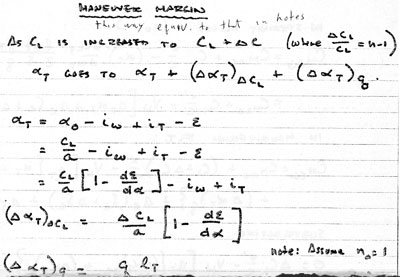 MANEUVER MARGIN
this way equiv. to that in notes
AS CL IS INCREASED TO CL + ΔC (where ΔCL/CL = n-1)
αT GOES TO αT + (ΔαT)ΔCL + (ΔαT)q.
αT = α0 - iw + iT - ε
= CL/a - iw + iT - ε
= CL/a [1 - dε/dα] - iw + iT
(ΔαT)ΔCL = ΔCL/a [1 - dε/dα]
note: Assume n0 = 1
(ΔαT)q = q lT